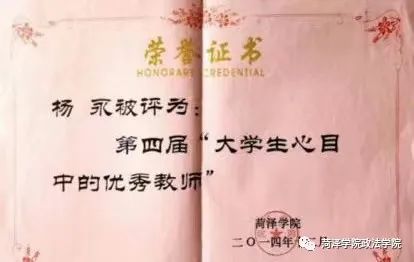 荣誉证书
HONORARY CREDENTIAL
杨 永被评为:
第四届“大学生心目
中的优秀教师”
菏泽学院
二〇一四年十二月
菏泽学院政法学院